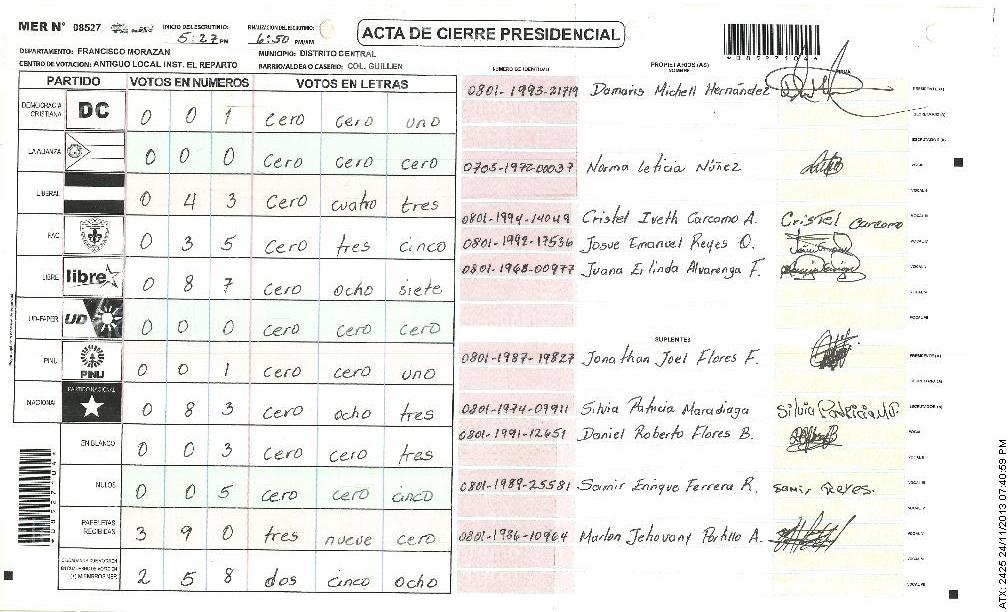 MER N° 08527
INICIO DEL ESCRUTINIO: 5:27 PM
FINALIZACION DEL ESCRUTINIO: 6:50 PM/AM
ACTA DE CIERRE PRESIDENCIAL
*08727104*
DEPARTAMENTO: FRANCISCO MORAZAN
MUNICIPIO: DISTRITO CENTRAL
CENTRO DE VOTACION: ANTIGUO LOCAL INST. EL REPARTO
BARRIO/ALDEA O CASERIO: COL. GUILLEN
PARTIDO VOTOS EN NUMEROS VOTOS EN LETRAS
DEMOCRACIA CRISTIANA DC 0 0 1 cero cero uno
LA ALIANZA 0 0 0 cero cero cero
LIBERAL 0 4 3 cero cuatro tres
PAC 0 3 5 cero tres cinco
LIBRE libre 0 8 7 cero ocho siete
UD-FAPER UD 0 0 0 cero cero cero
PINU PINU 0 0 1 cero cero uno
NACIONAL PARTIDO NACIONAL 0 8 3 cero ocho tres
EN BLANCO 0 0 3 cero cero tres
NULOS 0 0 5 cero cero cinco
PAPELETAS RECIBIDAS 3 9 0 tres nueve cero
2 5 8 dos cinco ocho
NUMERO DE IDENTIDAD PROPIETARIOS (AS) NOMBRE FIRMA
0801-1993-21719 Damaris Michell Hernández PRESIDENTE (A)
SECRETARIO (A)
ESCRUTADOR (A)
0703-1972-00037 Norma Leticia Núñez VOCAL I
VOCAL II
0801-1994-14049 Cristel Iveth Carcamo A. Cristel Carcamo VOCAL III
0801-1992-17536 Josue Emanuel Reyes O. VOCAL IV
0801-1968-00977 Juana Erlinda Alvarenga F. VOCAL V
VOCAL VI
VOCAL VII
SUPLENTES
0801-1987-19827 Jonathan Joel Flores F. PRESIDENTE (A)
SECRETARIO (A)
0801-1974-07911 Silvia Patricia Maradiaga ESCRUTADOR (A)
0801-1991-12651 Daniel Roberto Flores B. VOCAL I
VOCAL II
0801-1989-25581 Samir Enrique Ferrera R. Samir Reyes. VOCAL III
VOCAL IV
0801-1986-10964 Marlon Jehovany Portillo A. VOCAL V
VOCAL VI
VOCAL VII
*08727104*
ATX: 2425 24/11/2013 07:40:59 PM